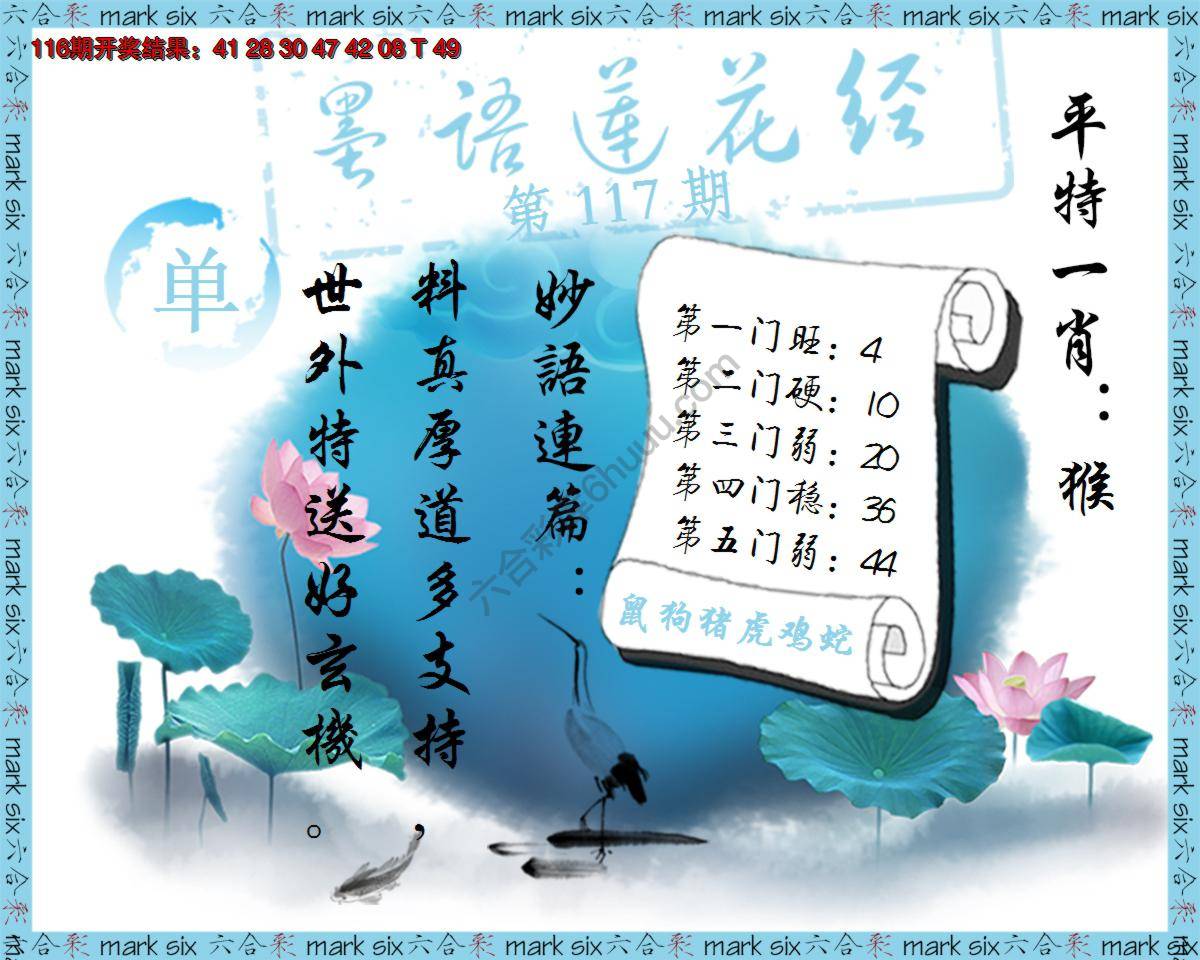 六合彩 mark six 六合彩 mark six 六合彩 mark six 六合彩 mark six 六合彩 mark six 六合彩 mark six
116期开奖结果：41 28 30 47 42 08 T 49
墨语莲花经
第 117 期
单
平特一肖：猴
妙語連篇：
料真厚道多支持，
世外特送好玄機。
第一门旺：4
第二门硬：10
第三门弱：20
第四门稳：36
第五门弱：44
鼠狗猪虎鸡蛇
六合彩 mark six 六合彩 mark six 六合彩 mark six 六合彩 mark six 六合彩 mark six 六合彩 mark six